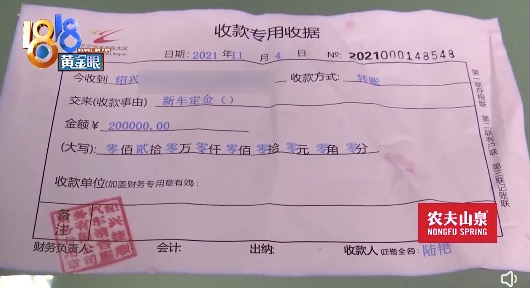 1818
黄金眼
收款专用收据
日期: 2021 年 11 月 4 日 №: 2021000148548
今收到 绍兴 收款方式: 转账
交来(收款事由) 新车定金()
金额¥ 200000.00
(大写): 零佰贰拾零万零仟零佰零拾零元零角零分
收款单位(加盖财务专用章有效):
备注
财务负责人: 会计: 出纳: 收款人(正楷全名): 陆艳
第一联存根联 第二联客户联 第三联记账联
农夫山泉
NONGFU SPRING